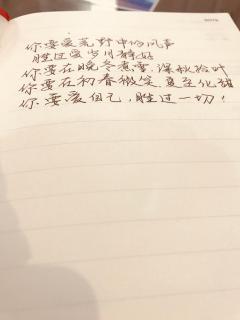 你要爱荒野中的风声
胜过爱岁月静好
你要在晚冬煮雪,深秋拾叶
你要在初春微笑,夏至化蝶
你要爱自己,胜过一切!